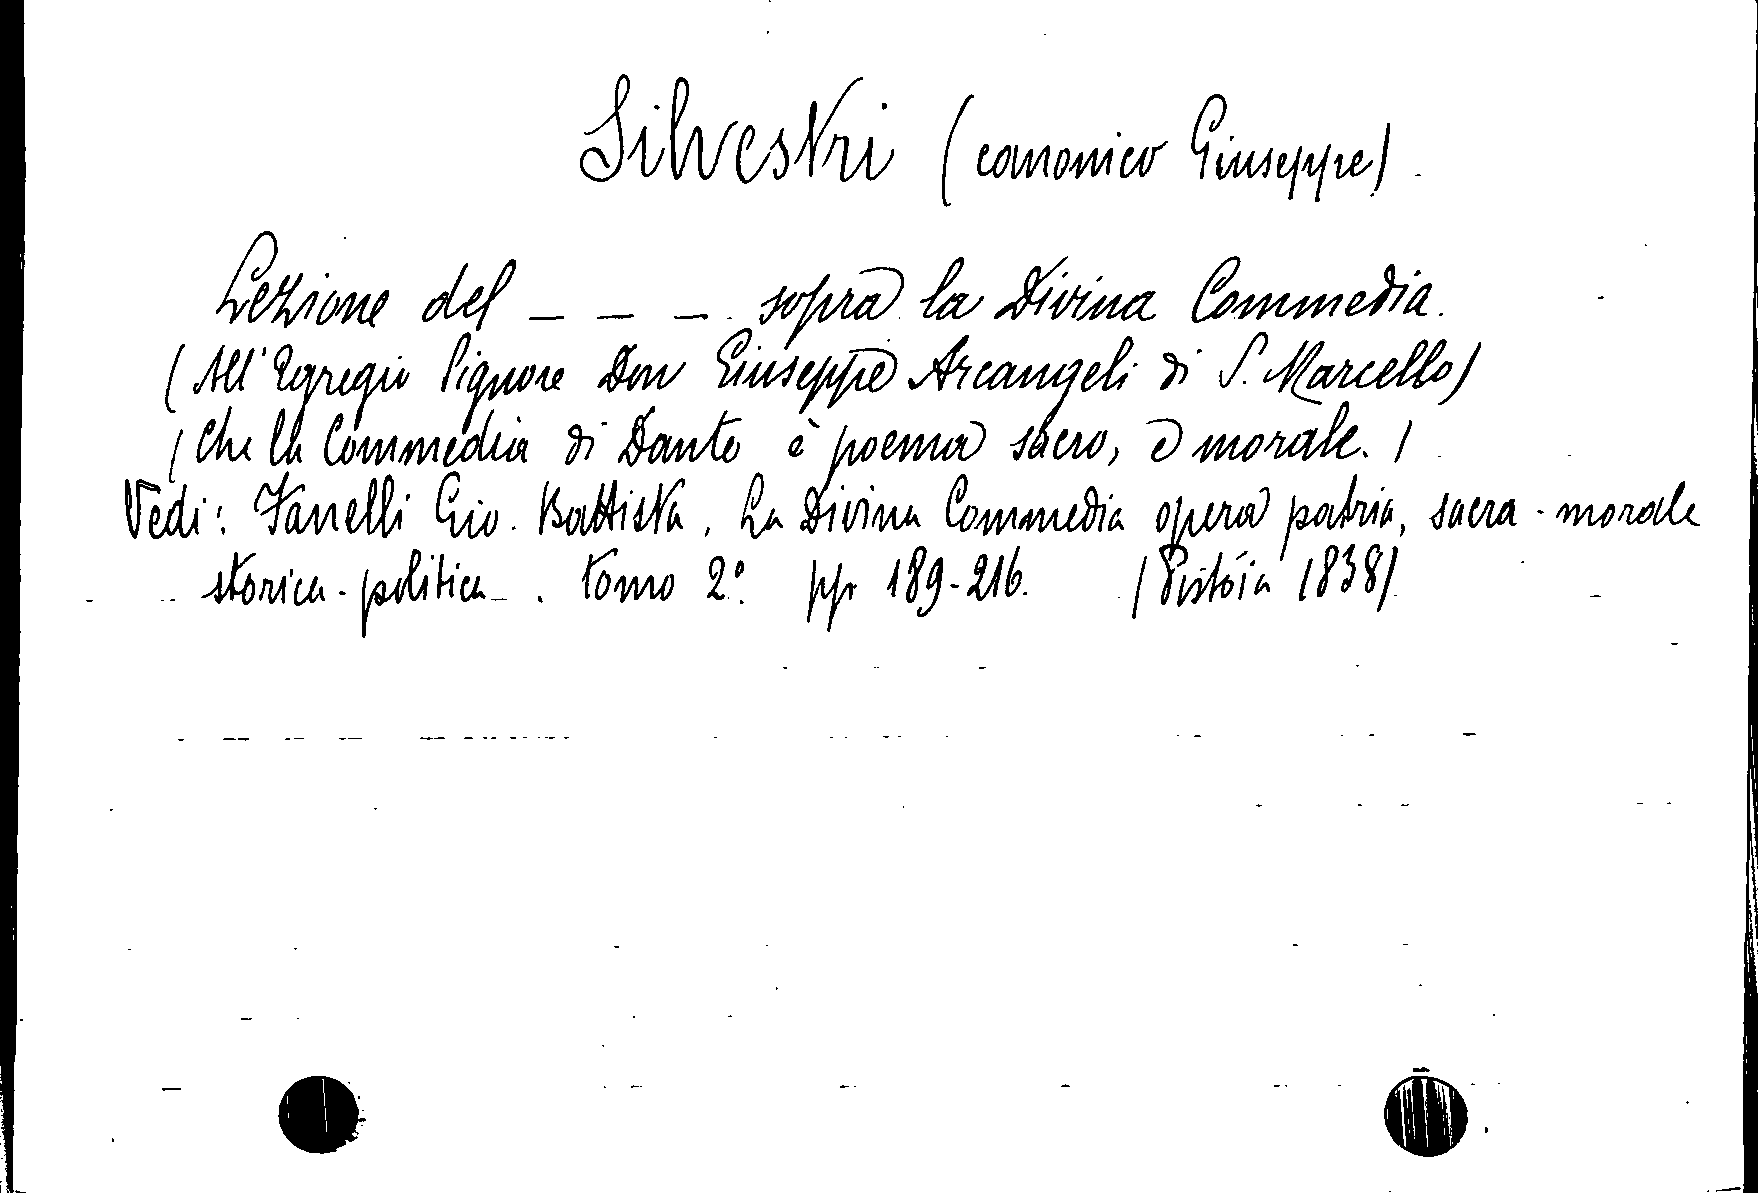 Silvestri (canonico Giuseppe).
Lezione del _ _ _ . sopra la Divina Commedia.
(All'Egregio Signore Don Giuseppe Arcangeli di S. Marcello)
(Che la Commedia di Dante è poema sacro, e morale.)
Vedi: Fanelli Gio. Battista. La Divina Commedia opera patria, sacra-morale
storica-politica _ . tomo 2º. pp. 189-216. (Pistóia 1838)